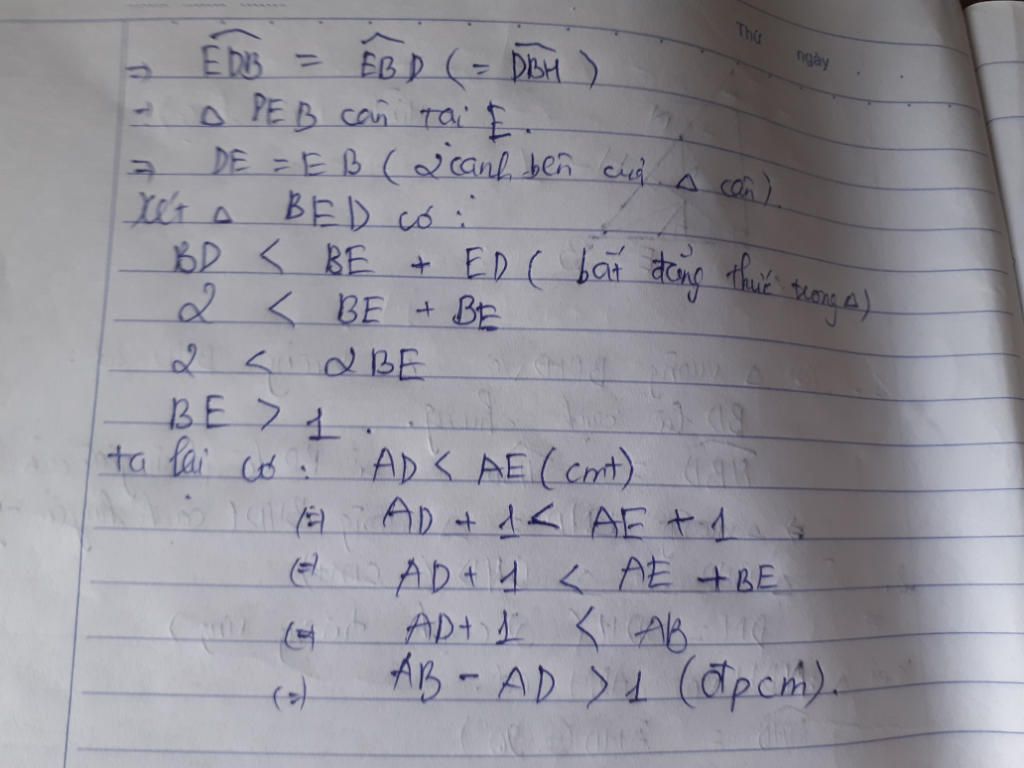 Thứ ngày
⇒ \widehat{EDB} = \widehat{EBD} (= \widehat{DBH})
⇒ △ DEB cân tại E.
⇒ DE = EB (2 cạnh bên của △ cân).
Xét △ BED có :
BD < BE + ED ( bất đẳng thức trong △)
2 < BE + BE
2 < 2BE
BE > 1.
ta lại có : AD < AE (cmt)
(=) AD + 1 < AE + 1
(=) AD + 1 < AE + BE
(=) AD + 1 < AB
(=) AB - AD > 1 (đpcm).